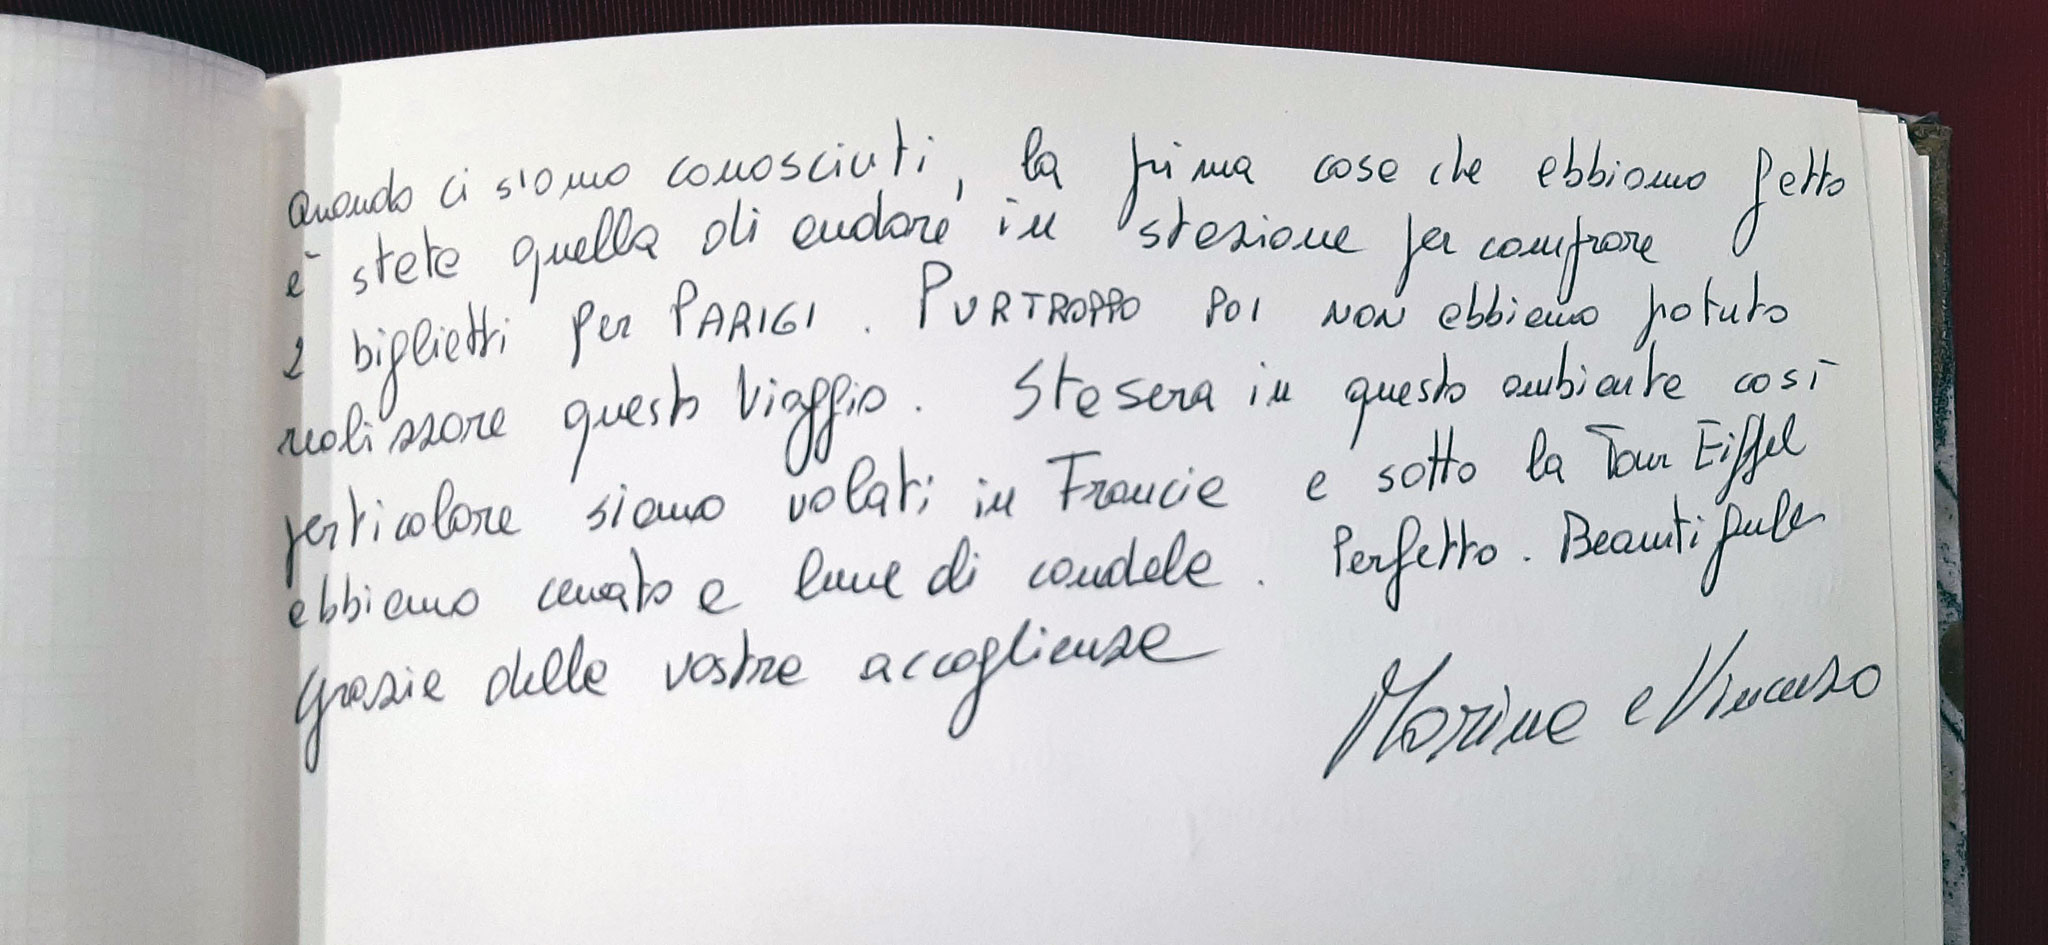 Quando ci siamo conosciuti, la prima cosa che abbiamo fatto
è stata quella di andare in stazione per comprare
2 biglietti per PARIGI. PURTROPPO POI NON abbiamo potuto
realizzare questo viaggio. Stasera in questo ambiente così
particolare siamo volati in Francia e sotto la Tour Eiffel
abbiamo cenato a lume di candela. Perfetto. Beautiful
Grazie della vostra accoglienza
Marina e Vincenzo